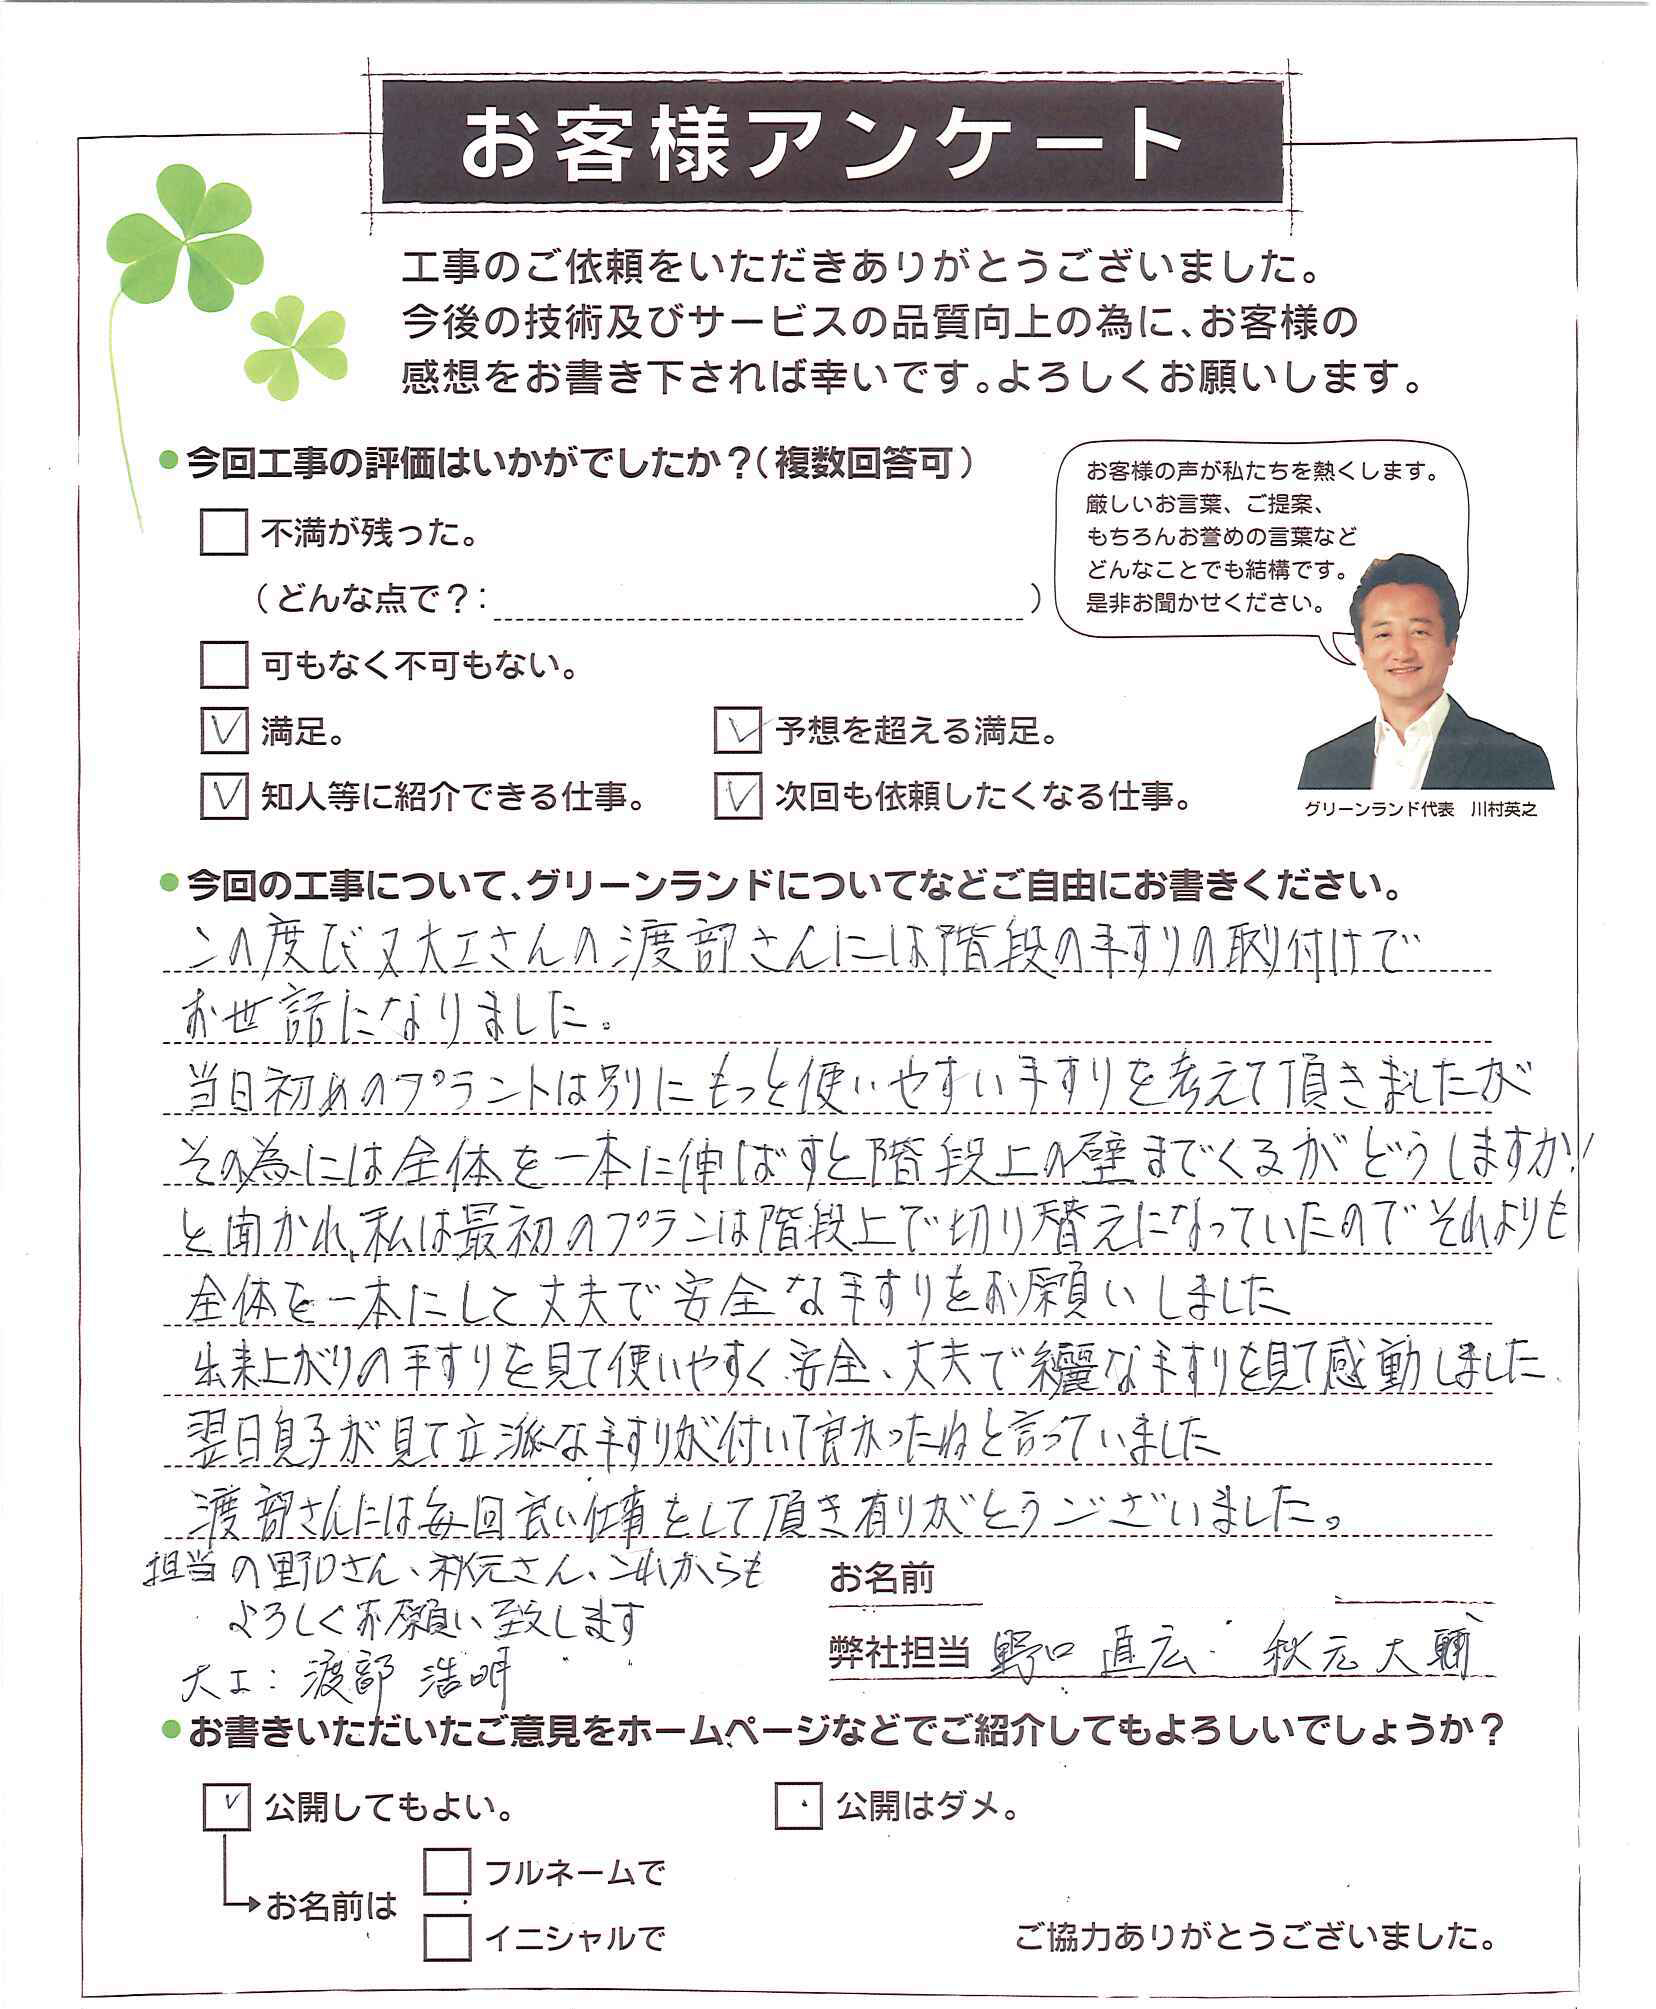 お客様アンケート
工事のご依頼をいただきありがとうございました。
今後の技術及びサービスの品質向上の為に、お客様の
感想をお書き下されば幸いです。よろしくお願いします。
今回工事の評価はいかがでしたか？（複数回答可）
不満が残った。
（どんな点で？：　）
可もなく不可もない。
満足。
予想を超える満足。
知人等に紹介できる仕事。
次回も依頼したくなる仕事。
お客様の声が私たちを熱くします。
厳しいお言葉、ご提案、
もちろんお誉めの言葉など
どんなことでも結構です。
是非お聞かせください。
グリーンランド代表　川村英之
今回の工事について、グリーンランドについてなどご自由にお書きください。
この度び又大工さんの渡部さんには階段の手すりの取り付けで
お世話になりました。
当日初めのプラントは別にもっと使いやすい手すりを考えて頂きましたが
その為には全体を一本に伸ばすと階段上の壁までくるがどうしますか!
と聞かれ、私は最初のプランは階段上で切り替えになっていたのでそれよりも
全体を一本にして丈夫で安全な手すりをお願いしました
出来上がりの手すりを見て使いやすく安全、丈夫で綺麗な手すりを見て感動しました
翌日息子が見て立派な手すりが付いて良かったねと言っていました
渡部さんには毎回良い仕事をして頂き有りがとうございました。
担当の野口さん、秋元さん、これからも
よろしくお願い致します
大工：渡部 浩明
お名前
弊社担当 野口 直広・秋元大輔
お書きいただいたご意見をホームページなどでご紹介してもよろしいでしょうか？
公開してもよい。
公開はダメ。
お名前は
フルネームで
イニシャルで
ご協力ありがとうございました。